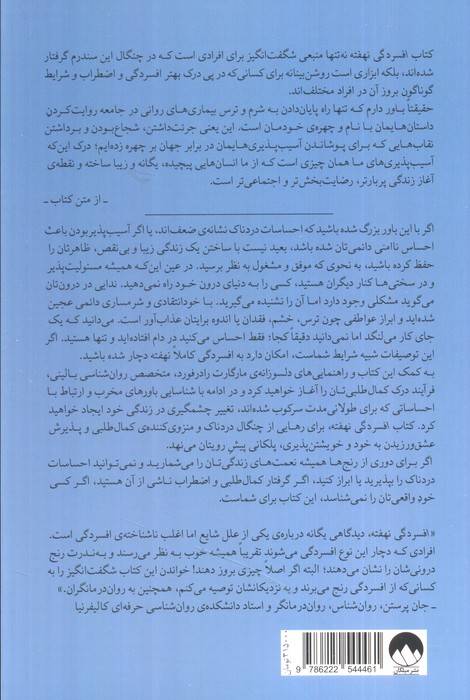 کتاب افسردگی نهفته نه‌تنها منبعی شگفت‌انگیز برای افرادی است که در چنگال این سندرم گرفتار
شده‌اند، بلکه ابزاری است روشن‌بینانه برای کسانی‌که در پی درک بهتر افسردگی و اضطراب و شرایط
گوناگون بروز آن در افراد مختلف‌اند.
حقیقتاً باور دارم که تنها راه پایان‌دادن به شرم و ترس بیماری‌های روانی در جامعه روایت‌کردن
داستان‌هایمان با نام و چهره‌ی خودمان است. این یعنی جرئت‌داشتن، شجاع‌بودن و برداشتن
نقاب‌هایی که برای پوشاندن آسیب‌پذیری‌هایمان در برابر جهان بر چهره زده‌ایم؛ درک این‌که
آسیب‌پذیری‌های ما همان چیزی است که از ما انسان‌هایی پیچیده، یگانه و زیبا ساخته و نقطه‌ی
آغاز زندگی پربارتر، رضایت‌بخش‌تر و اجتماعی‌تر است.
ـ از متن کتاب ـ
اگر با این باور بزرگ شده باشید که احساسات دردناک نشانه‌ی ضعف‌اند، یا اگر آسیب‌پذیربودن باعث
احساس ناامنی دائمی‌تان شده باشد، بعید نیست با ساختن یک زندگی زیبا و بی‌نقص، ظاهرتان را
حفظ کرده باشید، به نحوی که موفق و مشغول به نظر برسید. در عین این‌که همیشه مسئولیت‌پذیر
و در سختی‌ها کنار دیگران هستید، کسی را به دنیای درون خود راه نمی‌دهید. ندایی در درون‌تان
می‌گوید مشکلی وجود دارد اما آن را نشنیده می‌گیرید. با خودانتقادی و شرمساری دائمی عجین
شده‌اید و ابراز عواطفی چون ترس، خشم، فقدان یا اندوه برایتان عذاب‌آور است. می‌دانید که یک
جای کار می‌لنگد اما نمی‌دانید دقیقاً کجا؛ فقط احساس می‌کنید در دام افتاده‌اید و تنها هستید. اگر
این توصیفات شبیه شرایط شماست، امکان دارد به افسردگی کاملاً نهفته دچار شده باشید.
به کمک این کتاب و راهنمایی‌های دلسوزانه‌ی مارگارت رادرفورد، متخصص روان‌شناسی بالینی،
فرآیند درک کمال‌طلبی‌تان را آغاز خواهید کرد و در ادامه با شناسایی باورهای مخرب و ارتباط با
احساساتی که برای طولانی‌مدت سرکوب شده‌اند، تغییر چشمگیری در زندگی خود ایجاد خواهید
کرد. کتاب افسردگی نهفته، برای رهایی از چنگال دردناک و منزوی‌کننده‌ی کمال‌طلبی و پذیرش
عشق‌ورزیدن به خود و خویشتن‌پذیری، پلکانی پیش رویتان می‌نهد.
اگر برای دوری از رنج‌ها همیشه نعمت‌های زندگی‌تان را می‌شمارید و نمی‌توانید احساسات
دردناک را بپذیرید یا ابراز کنید، اگر گرفتار کمال‌طلبی و اضطراب ناشی از آن هستید، اگر کسی
خودِ واقعی‌تان را نمی‌شناسد، این کتاب برای شماست.
«افسردگی نهفته، دیدگاهی یگانه درباره‌ی یکی از علل شایع اما اغلب ناشناخته‌ی افسردگی است.
افرادی که دچار این نوع افسردگی می‌شوند تقریباً همیشه خوب به نظر می‌رسند و به‌ندرت رنج
درونی‌شان را نشان می‌دهند؛ البته اگر اصلاً چیزی بروز دهند! خواندن این کتاب شگفت‌انگیز را به
کسانی‌که از افسردگی رنج می‌برند و به نزدیکانشان توصیه می‌کنم، همچنین به روان‌درمانگران.»
ـ جان پرستن، روان‌شناس، روان‌درمانگر و استاد دانشکده‌ی روان‌شناسی حرفه‌ای کالیفرنیا
9 786222 544461
نشر میلکان